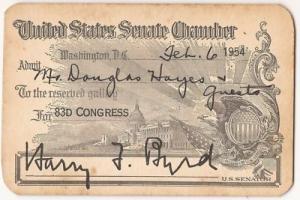 United States Senate Chamber
Washington, D.C. Feb. 6 1954
Admit
Mr. Douglas Hayes &
To the reserved gallery guests
For 83D CONGRESS
Harry F. Byrd
U.S. SENATOR